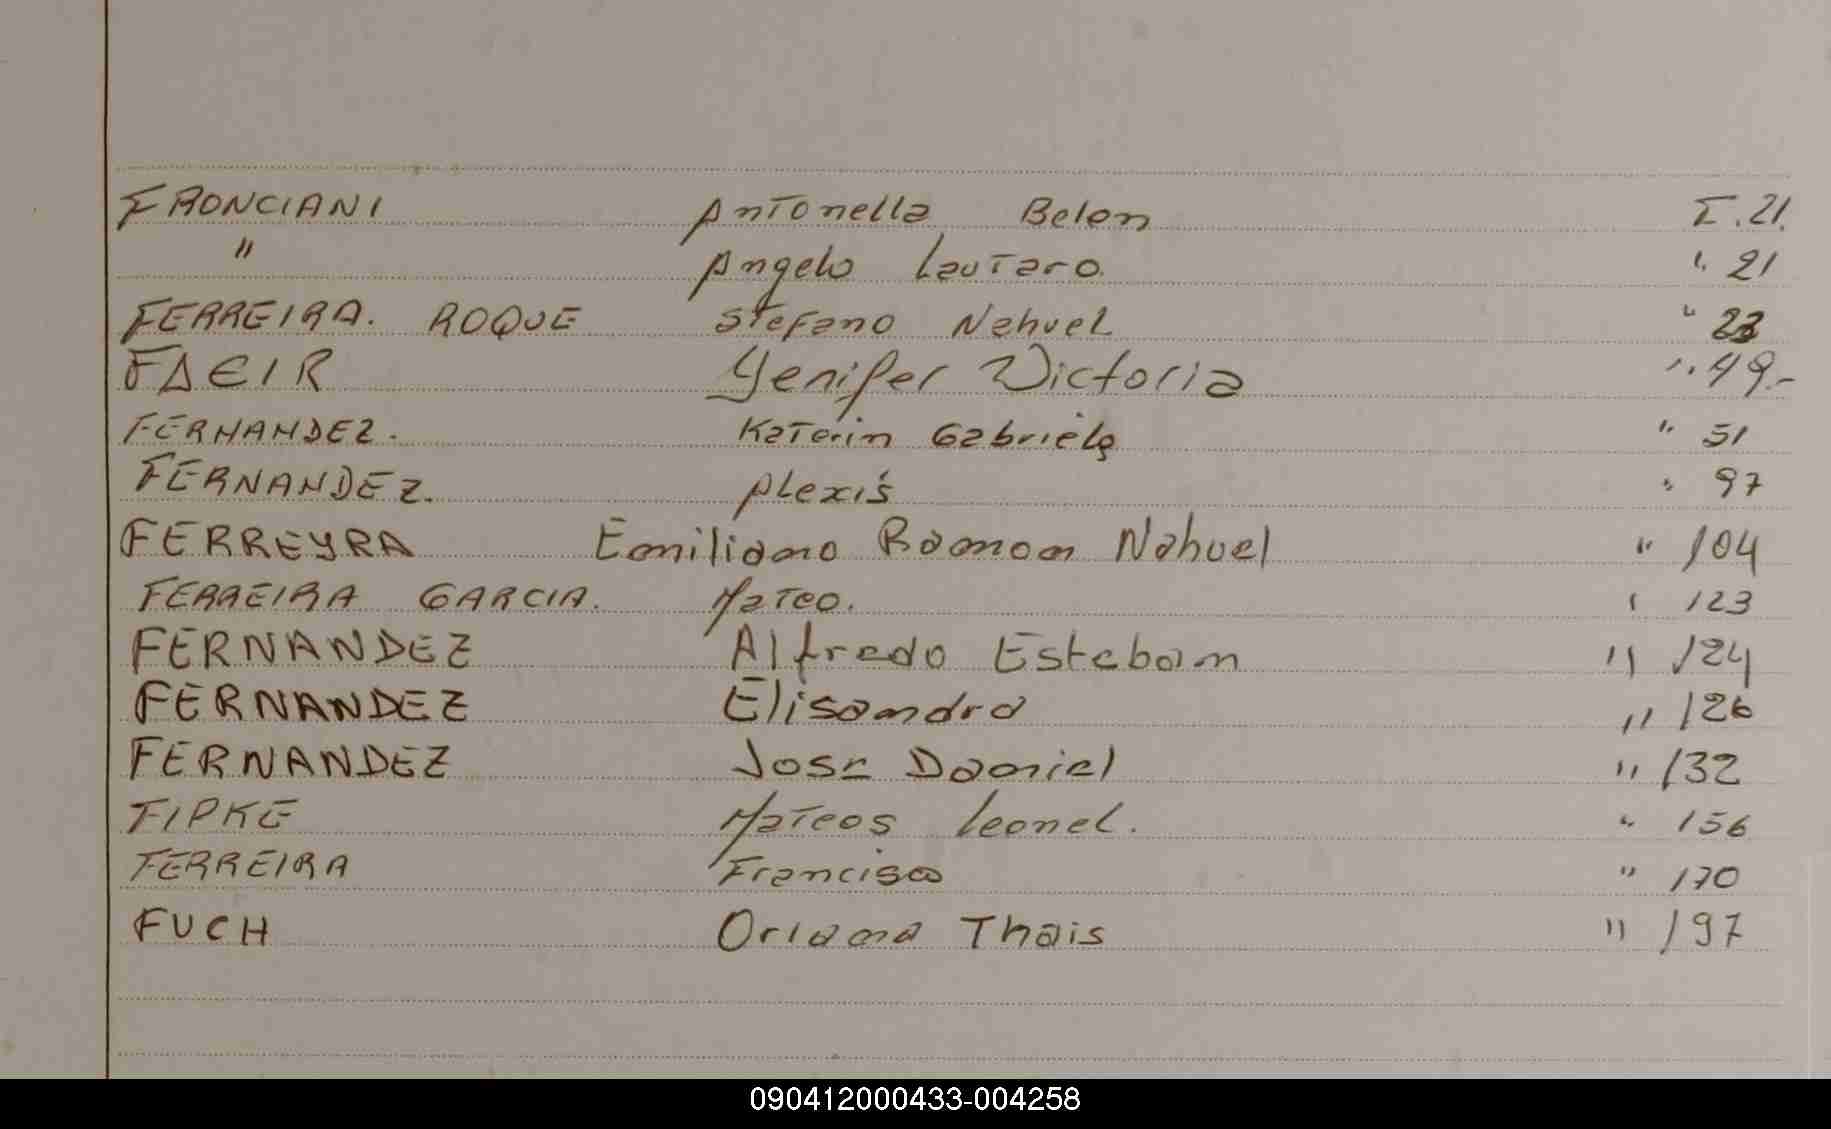 FRONCIANI Antonella Belen I. 21.
" Angelo Lautaro. " 21
FERREIRA. ROQUE Stefano Nahuel " 23
FACIR Yenifer Victoria " 49.-
FERNANDEZ. Katerin Gabriela " 51
FERNANDEZ. Alexis " 97
FERREYRA Emiliano Ramon Nahuel " 104
FERREIRA GARCIA. Mateo. " 123
FERNANDEZ Alfredo Esteban " 124
FERNANDEZ Elisandra " 126
FERNANDEZ Jose Daniel " 132
FIPKE Mateos Leonel. " 156
FERREIRA Francisco " 170
FUCH Oriana Thais " 197
090412000433-004258